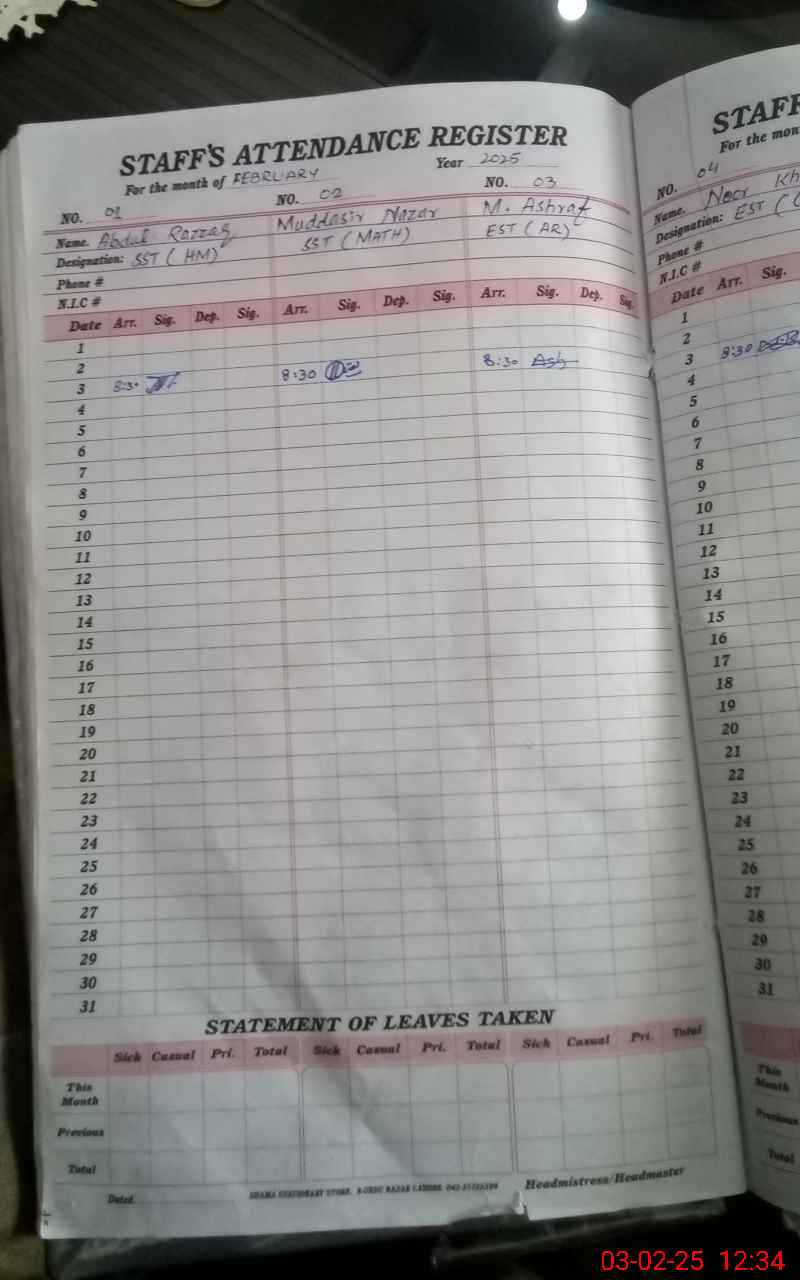 STAFF'S ATTENDANCE REGISTER
For the month of FEBRUARY Year 2025
NO. 01 NO. 02 NO. 03
Name. Abdul Razzaq Muddasir Nazar M. Ashraf
Designation: SST (HM) SST (MATH) EST (AR)
Phone #
N.I.C #
Date Arr. Sig. Dep. Sig. Arr. Sig. Dep. Sig. Arr. Sig. Dep. Sig.
1
2
3 8:30 8:30 8:30 Ash
4
5
6
7
8
9
10
11
12
13
14
15
16
17
18
19
20
21
22
23
24
25
26
27
28
29
30
31
STATEMENT OF LEAVES TAKEN
Sick Casual Pri. Total Sick Casual Pri. Total Sick Casual Pri. Total
This
Month
Previous
Total
Dated
SHAMA STATIONARY STORE, URDU BAZAR LAHORE.
Headmistress/Headmaster
STAFF
For the mon
NO. 04
Name. Noor Kh
Designation: EST
Phone #
N.I.C #
Date Arr. Sig.
1
2
3 8:30
4
5
6
7
8
9
10
11
12
13
14
15
16
17
18
19
20
21
22
23
24
25
26
27
28
29
30
31
This
Month
Previous
Total
03-02-25 12:34